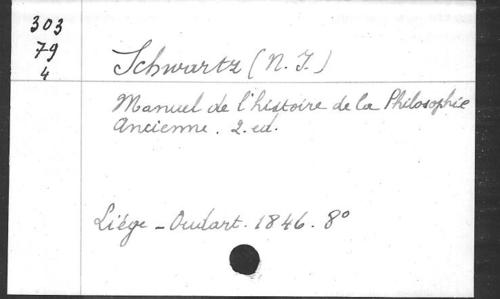 303
79
4
Schwartz (N. J.)
Manuel de l'histoire de la Philosophie
Ancienne. 2. ed.
Liége - Oudart. 1846. 8°